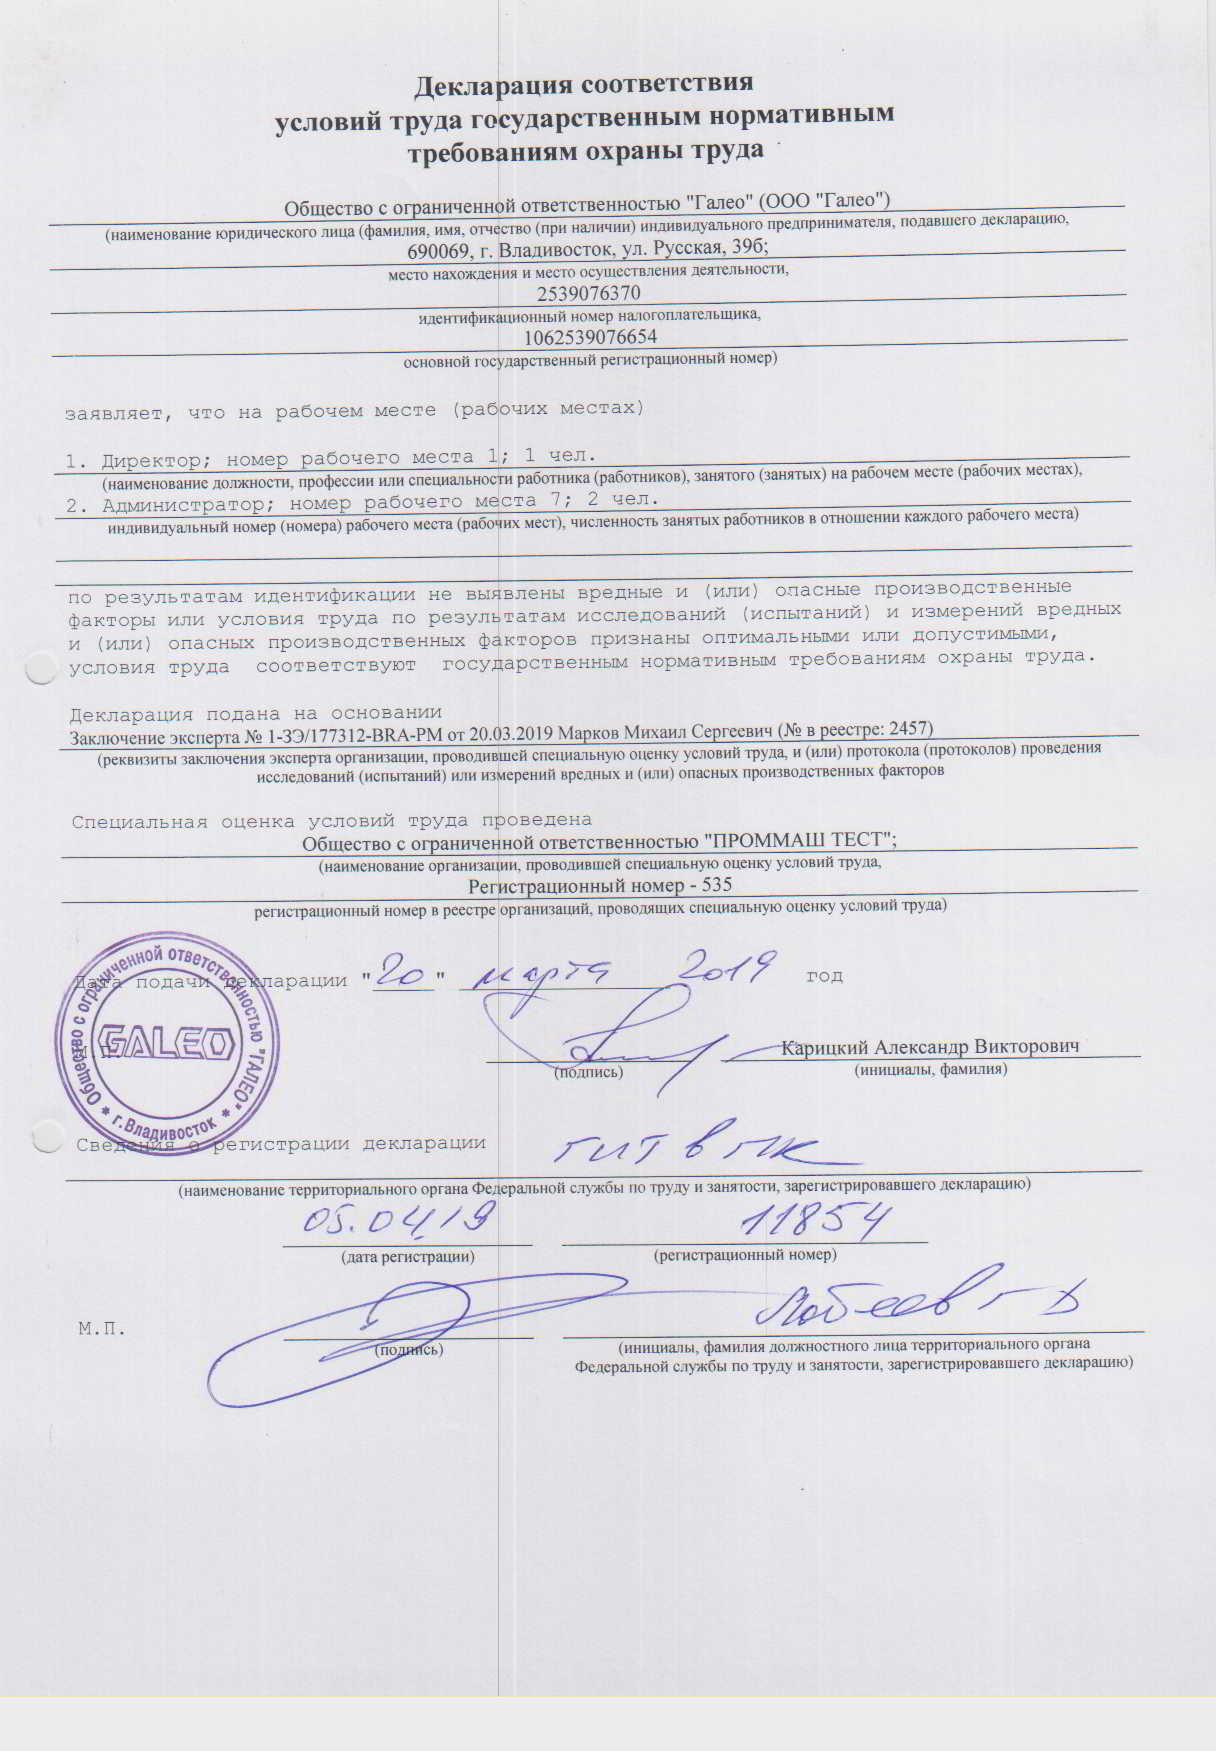 Декларация соответствия
условий труда государственным нормативным
требованиям охраны труда
Общество с ограниченной ответственностью "Галео" (ООО "Галео")
(наименование юридического лица (фамилия, имя, отчество (при наличии) индивидуального предпринимателя, подавшего декларацию,
690069, г. Владивосток, ул. Русская, 39б;
место нахождения и место осуществления деятельности,
2539076370
идентификационный номер налогоплательщика,
1062539076654
основной государственный регистрационный номер)
заявляет, что на рабочем месте (рабочих местах)
1. Директор; номер рабочего места 1; 1 чел.
(наименование должности, профессии или специальности работника (работников), занятого (занятых) на рабочем месте (рабочих местах),
2. Администратор; номер рабочего места 7; 2 чел.
индивидуальный номер (номера) рабочего места (рабочих мест), численность занятых работников в отношении каждого рабочего места)
по результатам идентификации не выявлены вредные и (или) опасные производственные
факторы или условия труда по результатам исследований (испытаний) и измерений вредных
и (или) опасных производственных факторов признаны оптимальными или допустимыми,
условия труда соответствуют государственным нормативным требованиям охраны труда.
Декларация подана на основании
Заключение эксперта № 1-ЗЭ/177312-BRA-PM от 20.03.2019 Марков Михаил Сергеевич (№ в реестре: 2457)
(реквизиты заключения эксперта организации, проводившей специальную оценку условий труда, и (или) протокола (протоколов) проведения
исследований (испытаний) или измерений вредных и (или) опасных производственных факторов
Специальная оценка условий труда проведена
Общество с ограниченной ответственностью "ПРОММАШ ТЕСТ";
(наименование организации, проводившей специальную оценку условий труда,
Регистрационный номер - 535
регистрационный номер в реестре организаций, проводящих специальную оценку условий труда)
Дата подачи декларации "20" марта 2019 год
Общество с ограниченной ответственностью "ГАЛЕО"
GALEO
* г.Владивосток *
М.П.
Карицкий Александр Викторович
(подпись) (инициалы, фамилия)
Сведения о регистрации декларации ГИТ в ПК
(наименование территориального органа Федеральной службы по труду и занятости, зарегистрировавшего декларацию)
05.04.19 11854
(дата регистрации) (регистрационный номер)
М.П.
(подпись) (инициалы, фамилия должностного лица территориального органа
Федеральной службы по труду и занятости, зарегистрировавшего декларацию)